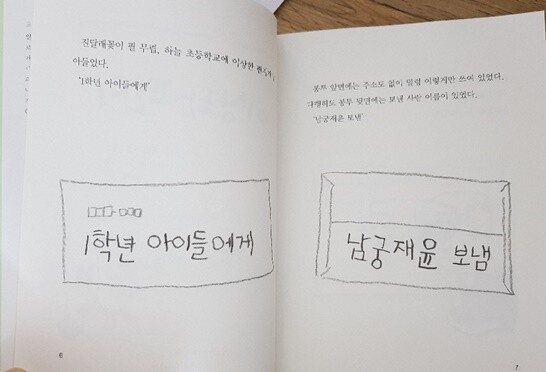 진달래꽃이 필 무렵, 하늘 초등학교에 이상한
아들었다.
'1학년 아이들에게'
1학년 아이들에게
6
봉투 앞면에는 주소도 없이 덜렁 이렇게만 쓰여 있었다.
다행히도 봉투 뒷면에는 보낸 사람 이름이 있었다.
'남궁재윤 보냄'
남궁재윤 보냄
7